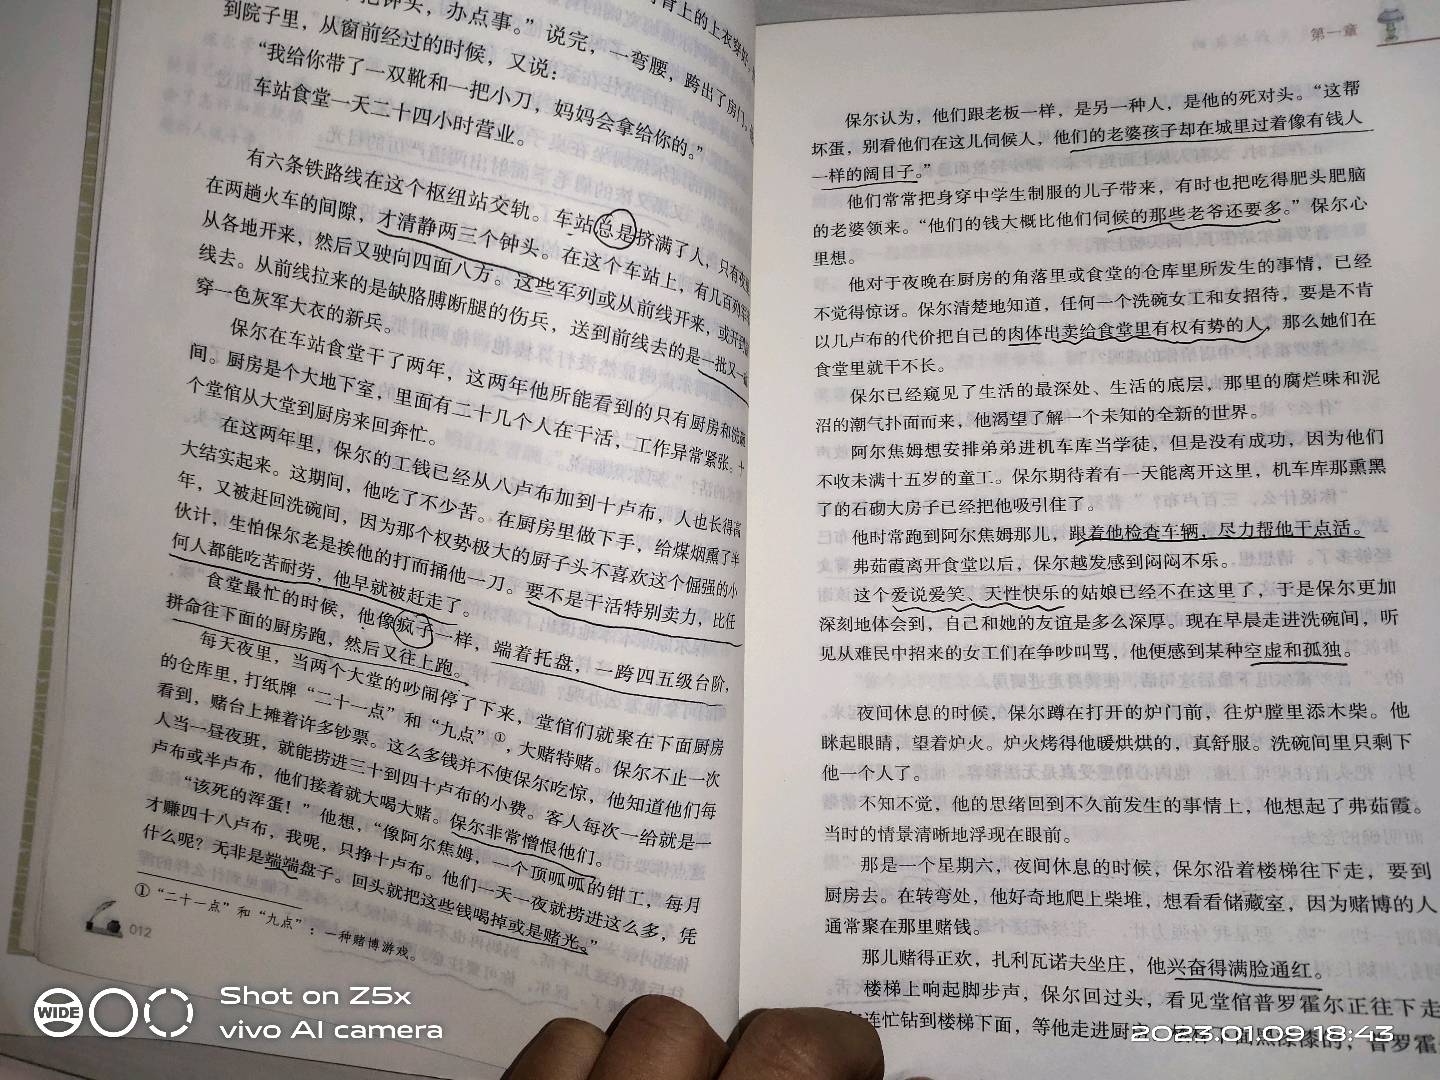 把钟头，办点事。”说完，一弯腰，跨出了房门，
背上的上衣穿好
到院子里，从窗前经过的时候，又说：
“我给你带了一双靴和一把小刀，妈妈会拿给你的。”
车站食堂一天二十四小时营业。
有六条铁路线在这个枢纽站交轨。车站总是挤满了人，只有夜
在两趟火车的间隙，才清静两三个钟头。在这个车站上，有几百列军
从各地开来，然后又驶向四面八方。这些军列或从前线开来，或开到
线去。从前线拉来的是缺胳膊断腿的伤兵，送到前线去的是一批又一
穿一色灰军大衣的新兵。
保尔在车站食堂干了两年，这两年他所能看到的只有厨房和洗碗
间。厨房是个大地下室，里面有二十几个人在干活，工作异常紧张。十
个堂倌从大堂到厨房来回奔忙。
在这两年里，保尔的工钱已经从八卢布加到十卢布，人也长得高
大结实起来。这期间，他吃了不少苦。在厨房里做下手，给煤烟熏了半
年，又被赶回洗碗间，因为那个权势极大的厨子头不喜欢这个倔强的小
伙计，生怕保尔老是挨他的打而捅他一刀。要不是干活特别卖力，比任
何人都能吃苦耐劳，他早就被赶走了。
食堂最忙的时候，他像疯子一样，端着托盘，一跨四五级台阶，
拼命往下面的厨房跑，然后又往上跑。
每天夜里，当两个大堂的吵闹停了下来，堂倌们就聚在下面厨房
的仓库里，打纸牌“二十一点”和“九点”①，大赌特赌。保尔不止一次
看到，赌台上摊着许多钞票。这么多钱并不使保尔吃惊，他知道他们每
人当一昼夜班，就能捞进三十到四十卢布的小费。客人每次一给就是一
卢布或半卢布，他们接着就大喝大赌。保尔非常憎恨他们。
“该死的浑蛋！”他想，“像阿尔焦姆，一个顶呱呱的钳工，每月
才赚四十八卢布，我呢，只挣十卢布。他们一天一夜就捞进这么多，凭
什么呢？无非是端端盘子。回头就把这些钱喝掉或是赌光。”
①“二十一点”和“九点”：一种赌博游戏。
012
第一章
保尔认为，他们跟老板一样，是另一种人，是他的死对头。“这帮
坏蛋，别看他们在这儿伺候人，他们的老婆孩子却在城里过着像有钱人
一样的阔日子。”
他们常常把身穿中学生制服的儿子带来，有时也把吃得肥头肥脑
的老婆领来。“他们的钱大概比他们伺候的那些老爷还要多。”保尔心
里想。
他对于夜晚在厨房的角落里或食堂的仓库里所发生的事情，已经
不觉得惊讶。保尔清楚地知道，任何一个洗碗女工和女招待，要是不肯
以几卢布的代价把自己的肉体出卖给食堂里有权有势的人，那么她们在
食堂里就干不长。
保尔已经窥见了生活的最深处、生活的底层，那里的腐烂味和泥
沼的潮气扑面而来，他渴望了解一个未知的全新的世界。
阿尔焦姆想安排弟弟进机车库当学徒，但是没有成功，因为他们
不收未满十五岁的童工。保尔期待着有一天能离开这里，机车库那熏黑
了的石砌大房子已经把他吸引住了。
他时常跑到阿尔焦姆那儿，跟着他检查车辆，尽力帮他干点活。
弗茹霞离开食堂以后，保尔越发感到闷闷不乐。
这个爱说爱笑、天性快乐的姑娘已经不在这里了，于是保尔更加
深刻地体会到，自己和她的友谊是多么深厚。现在早晨走进洗碗间，听
见从难民中招来的女工们在争吵叫骂，他便感到某种空虚和孤独。
夜间休息的时候，保尔蹲在打开的炉门前，往炉膛里添木柴。他
眯起眼睛，望着炉火。炉火烤得他暖烘烘的，真舒服。洗碗间里只剩下
他一个人了。
不知不觉，他的思绪回到不久前发生的事情上，他想起了弗茹霞。
当时的情景清晰地浮现在眼前。
那是一个星期六，夜间休息的时候，保尔沿着楼梯往下走，要到
厨房去。在转弯处，他好奇地爬上柴堆，想看看储藏室，因为赌博的人
通常聚在那里赌钱。
那儿赌得正欢，扎利瓦诺夫坐庄，他兴奋得满脸通红。
楼梯上响起脚步声，保尔回过头，看见堂倌普罗霍尔正往下走
连忙钻到楼梯下面，等他走进厨房。楼梯下面黑漆漆的，普罗霍
WIDE
Shot on Z5x
vivo AI camera
2023.01.09 18:43